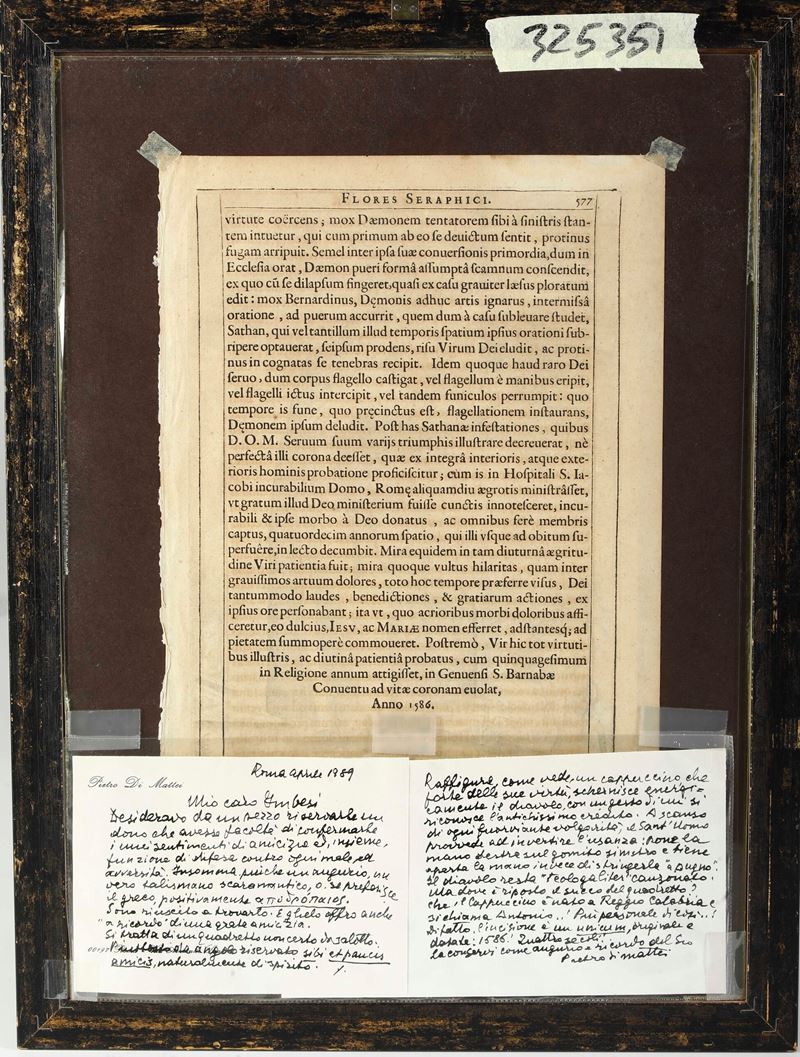 325351
FLORES SERAPHICI. 577
virtute coërcens ; mox Dæmonem tentatorem sibi à sinistris stan-
tem intuetur, qui cum primum ab eo se deuictum sentit, protinus
fugam arripuit. Semel inter ipsa suæ conuersionis primordia, dum in
Ecclesia orat, Dæmon pueri formâ assumptâ scamnum conscendit,
ex quo cũ se dilapsum fingeret, quasi ex casu grauiter læsus ploratum
edit : mox Bernardinus, Dęmonis adhuc artis ignarus, intermissâ
oratione, ad puerum accurrit, quem dum à casu subleuare studet,
Sathan, qui vel tantillum illud temporis spatium ipsius orationi sub-
ripere optauerat, seipsum prodens, risu Virum Dei eludit, ac proti-
nus in cognatas se tenebras recipit. Idem quoque haud raro Dei
seruo, dum corpus flagello castigat, vel flagellum è manibus eripit,
vel flagelli ictus intercipit, vel tandem funiculos perrumpit : quo
tempore is fune, quo pręcinctus est, flagellationem instaurans,
Dęmonem ipsum deludit. Post has Sathanæ infestationes, quibus
D. O. M. Seruum suum varijs triumphis illustrare decreuerat, nè
perfectâ illi corona deesset, quæ ex integrâ interioris, atque exte-
rioris hominis probatione proficiscitur; cùm is in Hospitali S. Ia-
cobi incurabilium Domo, Romę aliquamdiu ægrotis ministrâsset,
vt gratum illud Deo ministerium fuisse cunctis innotesceret, incu-
rabili & ipse morbo à Deo donatus, ac omnibus ferè membris
captus, quatuordecim annorum spatio, qui illi vsque ad obitum su-
perfuêre, in lecto decumbit. Mira equidem in tam diuturnâ ægritu-
dine Viri patientia fuit; mira quoque vultus hilaritas, quam inter
grauissimos artuum dolores, toto hoc tempore præferre visus, Dei
tantummodo laudes, benedictiones, & gratiarum actiones, ex
ipsius ore personabant; ita vt, quo acrioribus morbi doloribus affi-
ceretur, eo dulcius, IESV, ac MARIÆ nomen efferret, adstantesq; ad
pietatem summoperè commoueret. Postremò, Vir hic tot virtuti-
bus illustris, ac diutinâ patientiâ probatus, cum quinquagesimum
in Religione annum attigisset, in Genuensi S. Barnabæ
Conuentu ad vitæ coronam euolat,
Anno 1586.
Pietro De Mattei
Roma aprile 1989
Mio caro Umbesi
Desideravo da un pezzo riservarle un
dono che avesse facoltà di confermarle
i miei sentimenti di amicizia ed, insieme,
funzione di difesa contro ogni male, ed
avversità. Insomma, più che un augurio, un
vero talismano scaramantico, o, se preferisce
il greco, positivamente
Sono riuscito a trovarlo. E glielo offro anche
"a ricordo" di una grata amicizia.
Si tratta di un quadretto non certo da salotto.
riservato sibi et paucis
amicis, naturalmente di spirito.
Raffigura, come vede, un cappuccino che
forte delle sue virtù, schernisce energi-
camente il diavolo, con un gesto di cui si
riconosce l'antichissimo credito. A scanso
di ogni fuorviante volgarità, il Sant'Uomo
provvede ad invertire l'usanza: pone la
mano destra sul gomito sinistro e tiene
aperta la mano invece di stringerla "a pugno".
Il diavolo resta canzonato.
Ma dove è riposto il succo del quadretto?
che il Cappuccino è nato a Reggio Calabria e
si chiama Antonio..! Più personale di così..!
Di fatto, l'incisione è un unicum, originale e
datata: 1586! Quattro secoli!
La conservi come augurio e ricordo del Suo
Pietro di Mattei